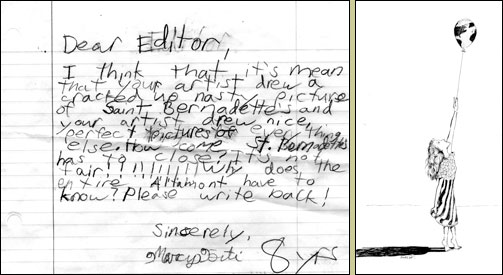 Dear Editor,
I think that it's mean
that your artist drew a
cracked up nasty picture
of Saint Bernadette's and
your artist drew nice,
perfect pictures of every thing
else. How come St. Bernadette's
has to close? It's not
fair!!!!!!!!!! Why does the
entire Altamont have to
know? Please write back!
Sincerely,
8 yrs